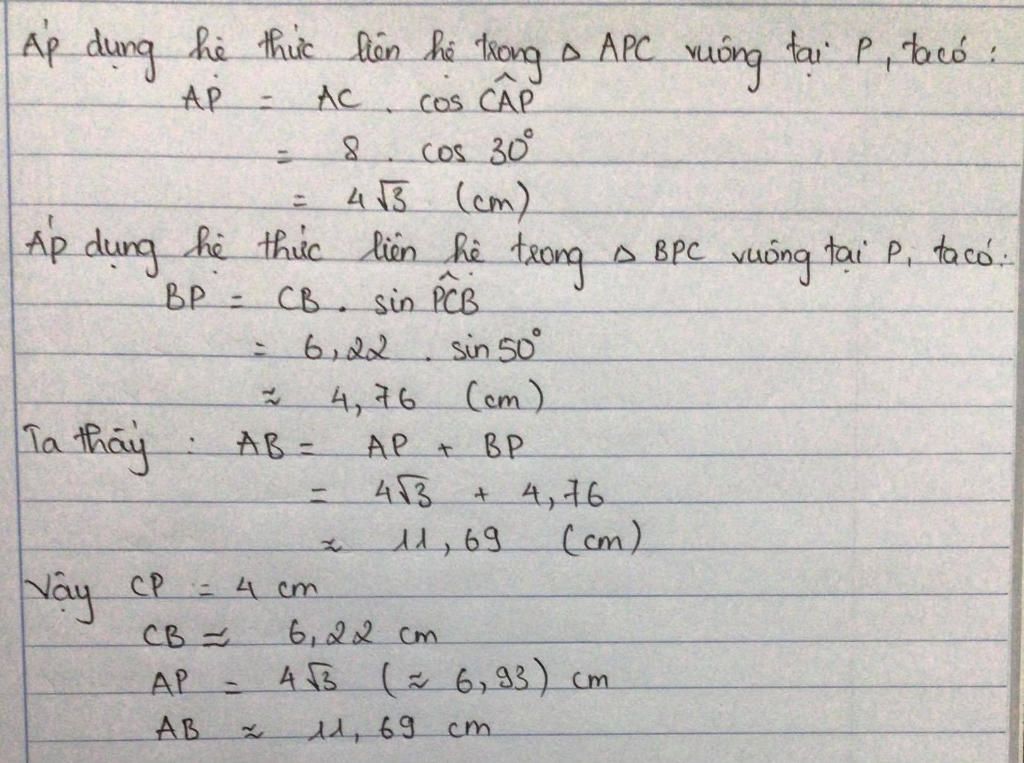 Áp dụng hệ thức liên hệ trong Δ APC vuông tại P, ta có :
AP = AC . cos CÂP
= 8 . cos 30°
= 4√3 (cm)
Áp dụng hệ thức liên hệ trong Δ BPC vuông tại P, ta có:
BP = CB . sin PĈB
= 6,22 . sin 50°
≈ 4,76 (cm)
Ta thấy : AB = AP + BP
= 4√3 + 4,76
≈ 11,69 (cm)
Vậy CP = 4 cm
CB ≈ 6,22 cm
AP = 4√3 (≈ 6,93) cm
AB ≈ 11,69 cm